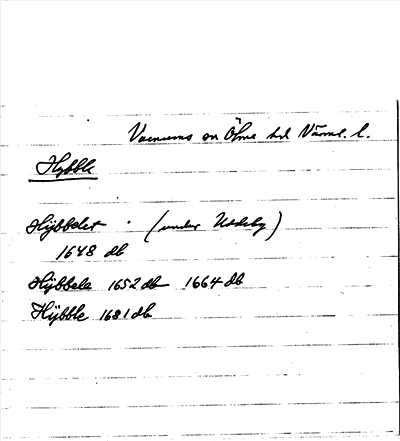 Varnums sn Ölme hd Värml. l.
Hybble
Hÿbbelet . (under Uddeby)
1648 db
Hÿbbele 1652 db 1664 db
Hÿbble 1681 db